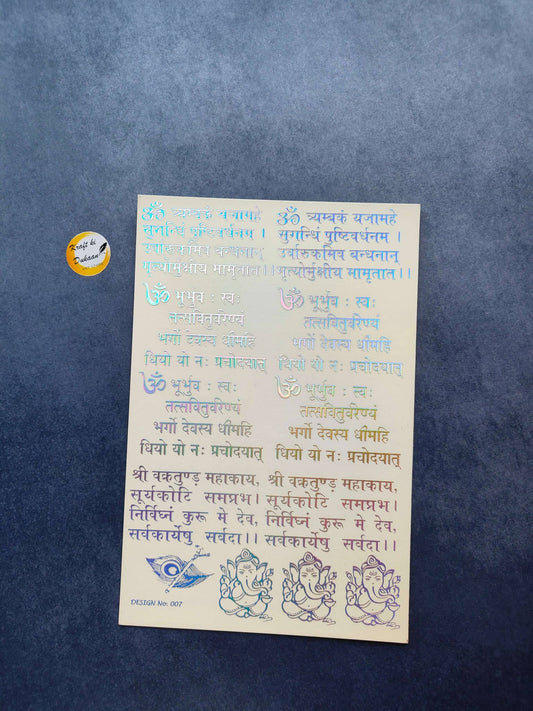 Kraft ki
Dukaan
ॐ त्र्यम्बकं यजामहे
सुगन्धिं पुष्टिवर्धनम ।
उर्वारुकमिव बन्धनान्
मृत्योर्मुक्षीय मामृतात।।
ॐ त्र्यम्बकं यजामहे
सुगन्धिं पुष्टिवर्धनम ।
उर्वारुकमिव बन्धनान्
मृत्योर्मुक्षीय मामृतात।।
ॐ भूर्भुवः स्वः
तत्सवितुर्वरेण्यं
भर्गो देवस्य धीमहि
धियो यो नः प्रचोदयात्
ॐ भूर्भुवः स्वः
तत्सवितुर्वरेण्यं
भर्गो देवस्य धीमहि
धियो यो नः प्रचोदयात्
ॐ भूर्भुवः स्वः
तत्सवितुर्वरेण्यं
भर्गो देवस्य धीमहि
धियो यो नः प्रचोदयात्
ॐ भूर्भुवः स्वः
तत्सवितुर्वरेण्यं
भर्गो देवस्य धीमहि
धियो यो नः प्रचोदयात्
श्री वक्रतुण्ड महाकाय,
सूर्यकोटि समप्रभ।
निर्विघ्नं कुरू मे देव,
सर्वकार्येषु सर्वदा।।
श्री वक्रतुण्ड महाकाय,
सूर्यकोटि समप्रभ।
निर्विघ्नं कुरू मे देव,
सर्वकार्येषु सर्वदा।।
DESIGN No: 007